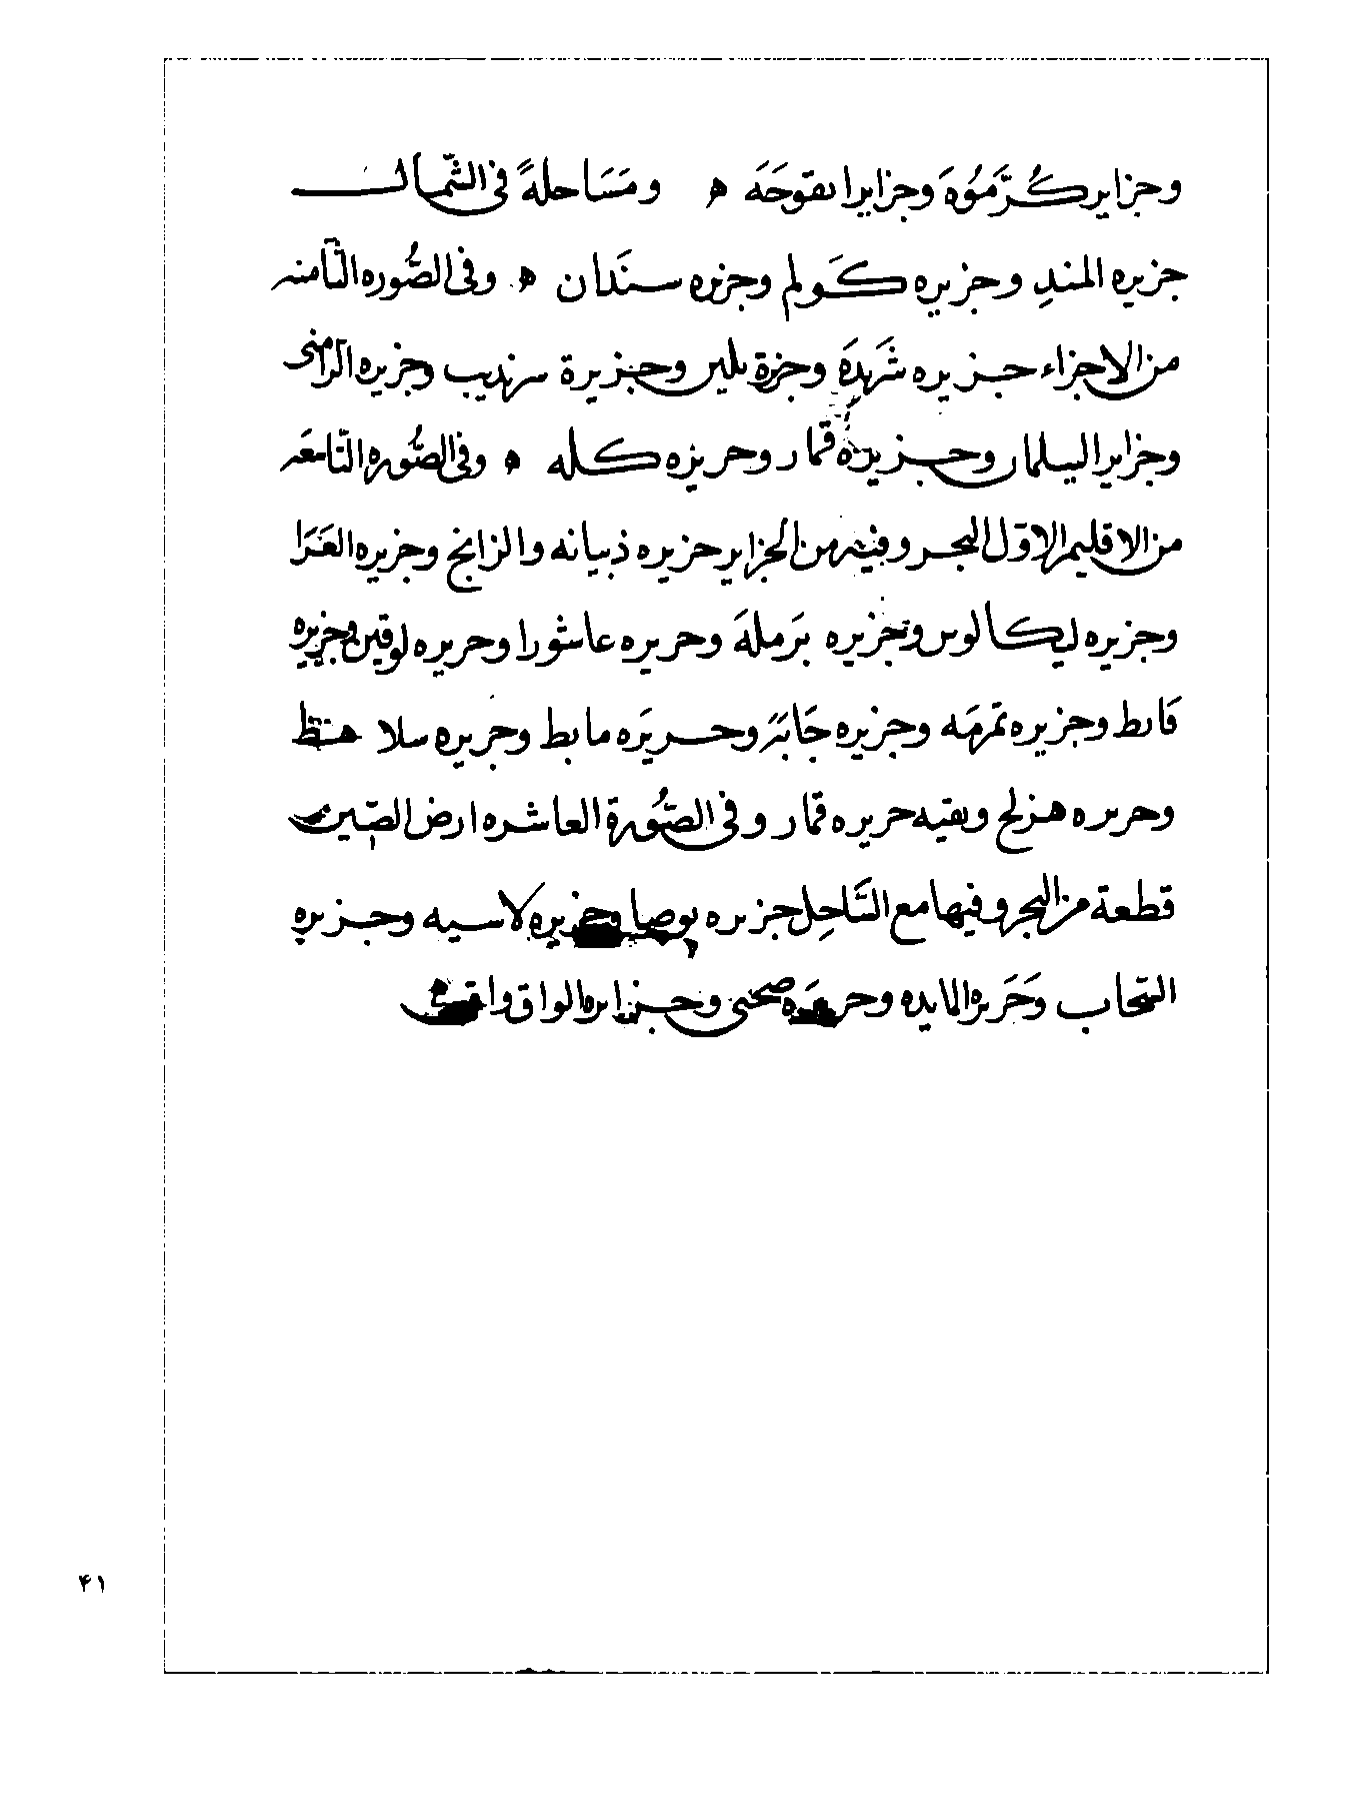 وجزاير كُرَّمَوُهَ وجزايرا نقوجَهَ ه ومَسَاحلهً في الشّمال
جزيره المندِ وجزيره كَولم وجزيره سندَان ه وفي الصُّوره الثّامنه
من الاجزاء جزيره شَرندَه وجزة بلين وجزيرة سرنديب وجزيره الرّامني
وجزاير البيلمان وجزيره قمار وحريزه كله ه وفي الصُّوره التّاسعَه
من الاقليم الاوّل البحر وفيه من الجزاير جزيره ذبيانه والزابج وجزيره العَرَا
وجزيره ليكالوس وجزيره برَملهَ وحريره عاشورا وحريره لوقين وجزيره
قابط وجزيره تمرمَه وجزيره جَابَة وحريَره مابط وجزيره سلاهط
وحريره هزلج وبقيه حريره قمار وفي الصُّورة العاشره ارض الصّين
قطعة من البحر وفيها مع السَّاحِل جزيره بوصا وجزيره لاسيه وجزيره
السّحاب وحَريره المايده وحريره صحى وجزايره الواق واق
۴۱